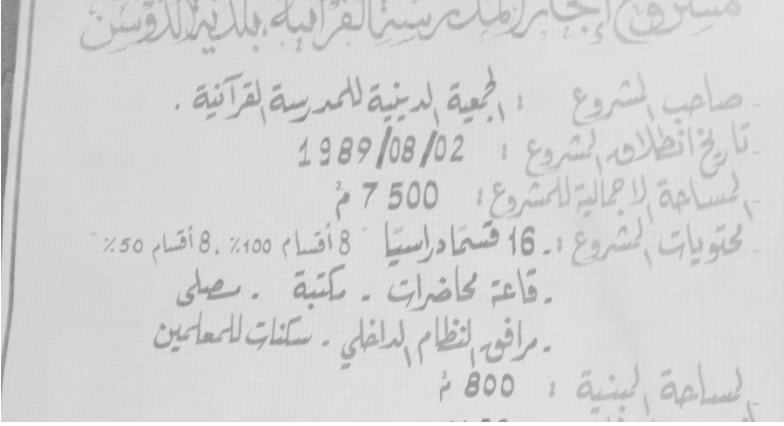 مشروع إنجاز المدرسة القرآنية ببلدية الدوسن
- صاحب المشروع : الجمعية الدينية للمدرسة القرآنية .
- تاريخ انطلاق المشروع : 1989/08/02
- المساحة الاجمالية للمشروع : 7500 م²
- محتويات المشروع : - 16 قسمًا دراسيًا 8 أقسام 100٪ . 8 أقسام 50٪
- قاعة محاضرات - مكتبة - مصلى
- مرافق النظام الداخلي - سكنات للمعلمين
- المساحة المبنية : 800 م²